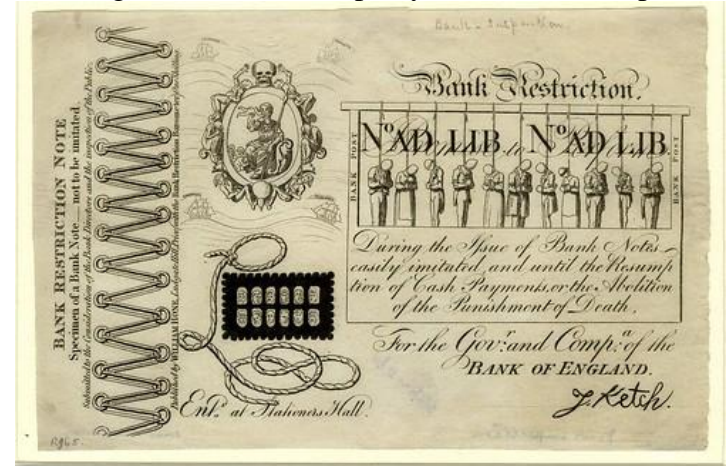 Bank Restriction.
BANK RESTRICTION NOTE
Specimen of a Bank Note — not to be imitated.
Submitted to the Consideration of the Bank Directors and the inspection of the Public.
Published by WILLIAM HONE, Ludgate Hill, Price with the Bank Restriction Barometer One Shilling.
BANK POST
Nº AD. LIB. Nº AD LIB.
BANK POST
During the Issue of Bank Notes
easily imitated, and until the Resump
tion of Cash Payments, or the Abolition
of the Punishment of Death,
For the Govr. and Compa. of the
BANK OF ENGLAND.
J. Ketch.
Entd. at Stationers Hall.